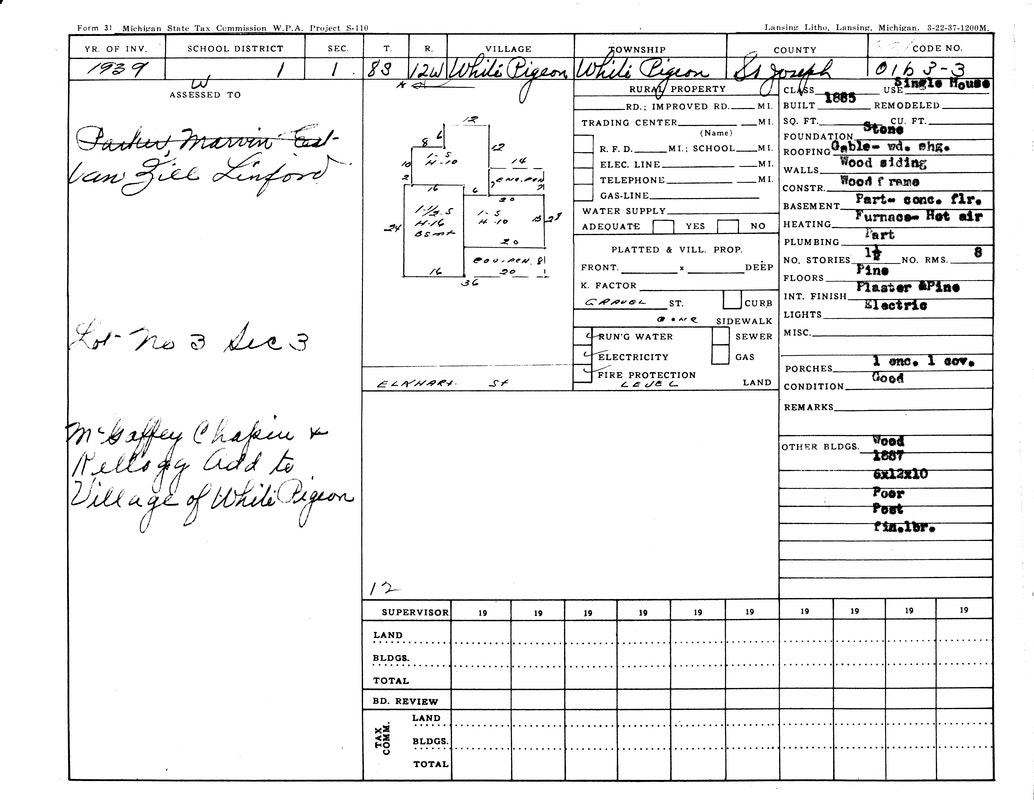 Form 31 Michigan State Tax Commission W.P.A. Project S-110
Lansing Litho, Lansing, Michigan. 3-22-37-1200M.
YR. OF INV. SCHOOL DISTRICT SEC. T. R. VILLAGE TOWNSHIP COUNTY CODE NO.
1939 1 1. 8S 12W White Pigeon White Pigeon St Joseph 0163-3
W
ASSESSED TO
Parker, Marvin Est-
Van Zill Linford
Lot No 3 Sec 3
McGaffey Chapin &
Kellogg Add to
Village of White Pigeon
12
8 6
1-S
H-10
12
10
2
14
ENC. PCH
7 7
16 6 20
1-1/2-S
H-16
Bsmt
24
1-S
H-10
B 28
20
COV. PCH. 8
16 20
36
ELKHART. St
12
RURAL PROPERTY
RD.; IMPROVED RD. MI.
TRADING CENTER MI.
(Name)
R. F. D. MI.; SCHOOL MI.
ELEC. LINE MI.
TELEPHONE MI.
GAS-LINE
WATER SUPPLY
ADEQUATE YES NO
PLATTED & VILL. PROP.
FRONT. x DEEP
K. FACTOR
GRAVEL ST. CURB
GONE SIDEWALK
RUN'G WATER SEWER
ELECTRICITY GAS
FIRE PROTECTION
LEVEL LAND
CLASS USE Single House
BUILT 1885 REMODELED
SQ. FT. CU. FT.
FOUNDATION Stone
ROOFING Gable- wd. shg.
WALLS Wood siding
CONSTR. Wood frame
BASEMENT Part- conc. flr.
HEATING Furnace- Hot air
PLUMBING Part
NO. STORIES 1½ NO. RMS. 8
FLOORS Pine
INT. FINISH Plaster &Pine
LIGHTS Electric
MISC.
PORCHES 1 enc. 1 cov.
CONDITION Good
REMARKS
OTHER BLDGS. Wood
1887
6x12x10
Poor
Post
fin.lbr.
SUPERVISOR 19 19 19 19 19 19 19 19 19
LAND
BLDGS.
TOTAL
BD. REVIEW
TAX COMM.
LAND
BLDGS.
TOTAL